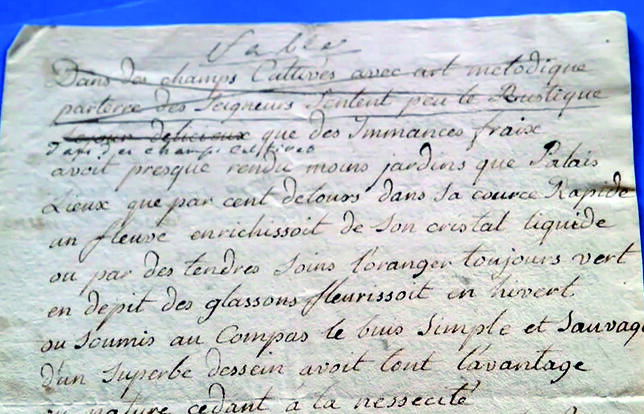 Fable
Dans des champs Cultivés avec art metodique
parterre des Seigneurs Sentent peu le Rustique
Sejour delicieux que des Immances fraix
Dans des champs cultivés
avoit presque rendu moins jardins que Palais
Lieux que par cent detours dans sa cource Rapide
un fleuve enrichissoit de son cristal liquide
ou par des tendres soins l'oranger toujours vert
en depit des glassons fleurissoit en hivert
ou soumis au Compas le buis simple et Sauvage
d'un Superbe dessein avoit tout l'avantage
nature cedant à la nessecité